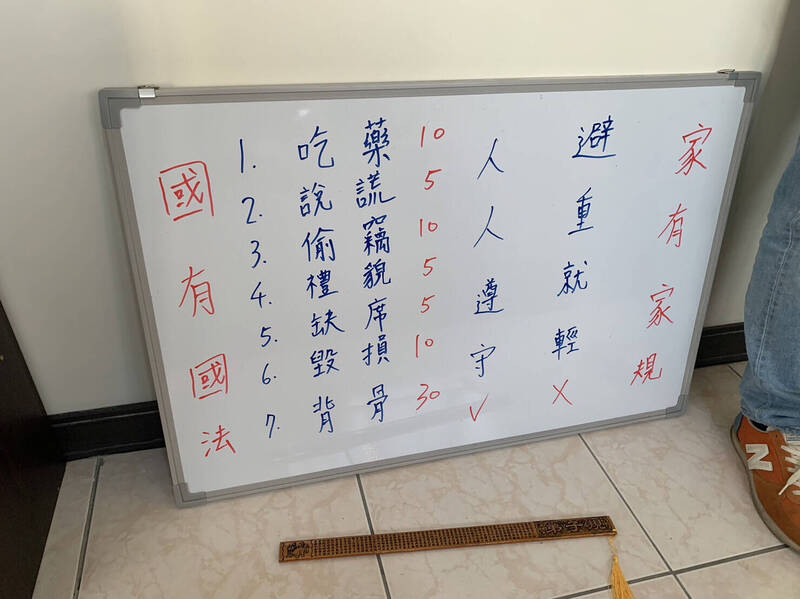 國有國法
1. 吃藥 10
2. 說謊 5
3. 偷竊 10
4. 禮貌 5
5. 缺席 5
6. 毀損 10
7. 背骨 30
人人遵守 ✓
避重就輕 ✗
家有家規
N